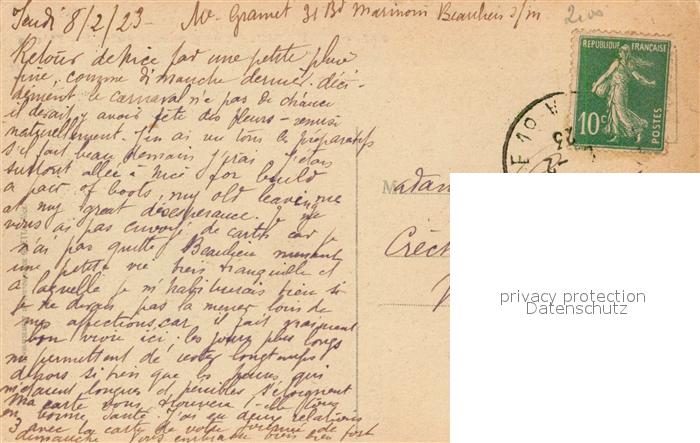 Jeudi 8/2/23 - Mr Gramet 31 Bd Marinoni Beaulieu s/m
Retour de Nice par une petite pluie
fine, comme dimanche dernier. Déci-
dément le carnaval n'a pas de chance
il devait y avoir fête des fleurs - remise
naturellement. J'en ai vu tous les préparatifs
S'il fait beau demain j'irai. J'étais
surtout allée à Nice for
a pair of boots, my old leaving me
at my great désespérance. Je ne
vous ai pas envoyé de cartes car je
n'ai pas quitté Beaulieu menant
une petite vie très tranquille et
à laquelle je m'habituerais bien si
je ne devais pas la mener loin de
mes affections, car il fait vraiment
bon vivre ici; les jours plus longs
me permettent de rester longtemps
dehors si bien que les heures qui
m'étaient longues et pénibles s'éloignent
Ma carte vous trouvera t-elle tous
en bonne santé J'ai eu deux relations
avec la carte de votre
dimanche Vous embrasse bien bien fort
2,00
REPUBLIQUE FRANÇAISE
10c
POSTES
Madam
Crèch
privacy protection
Datenschutz